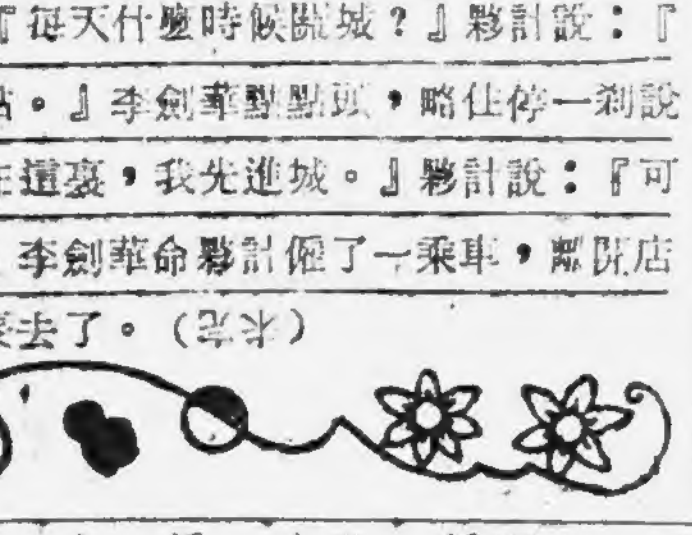 『每天什麼時候關城？』夥計說：『
點。』李劍華點點頭，略住停一剎說
在這裏，我先進城。』夥計說：『可
李劍華命夥計僱了一乘車，離開店
去了。（未完）